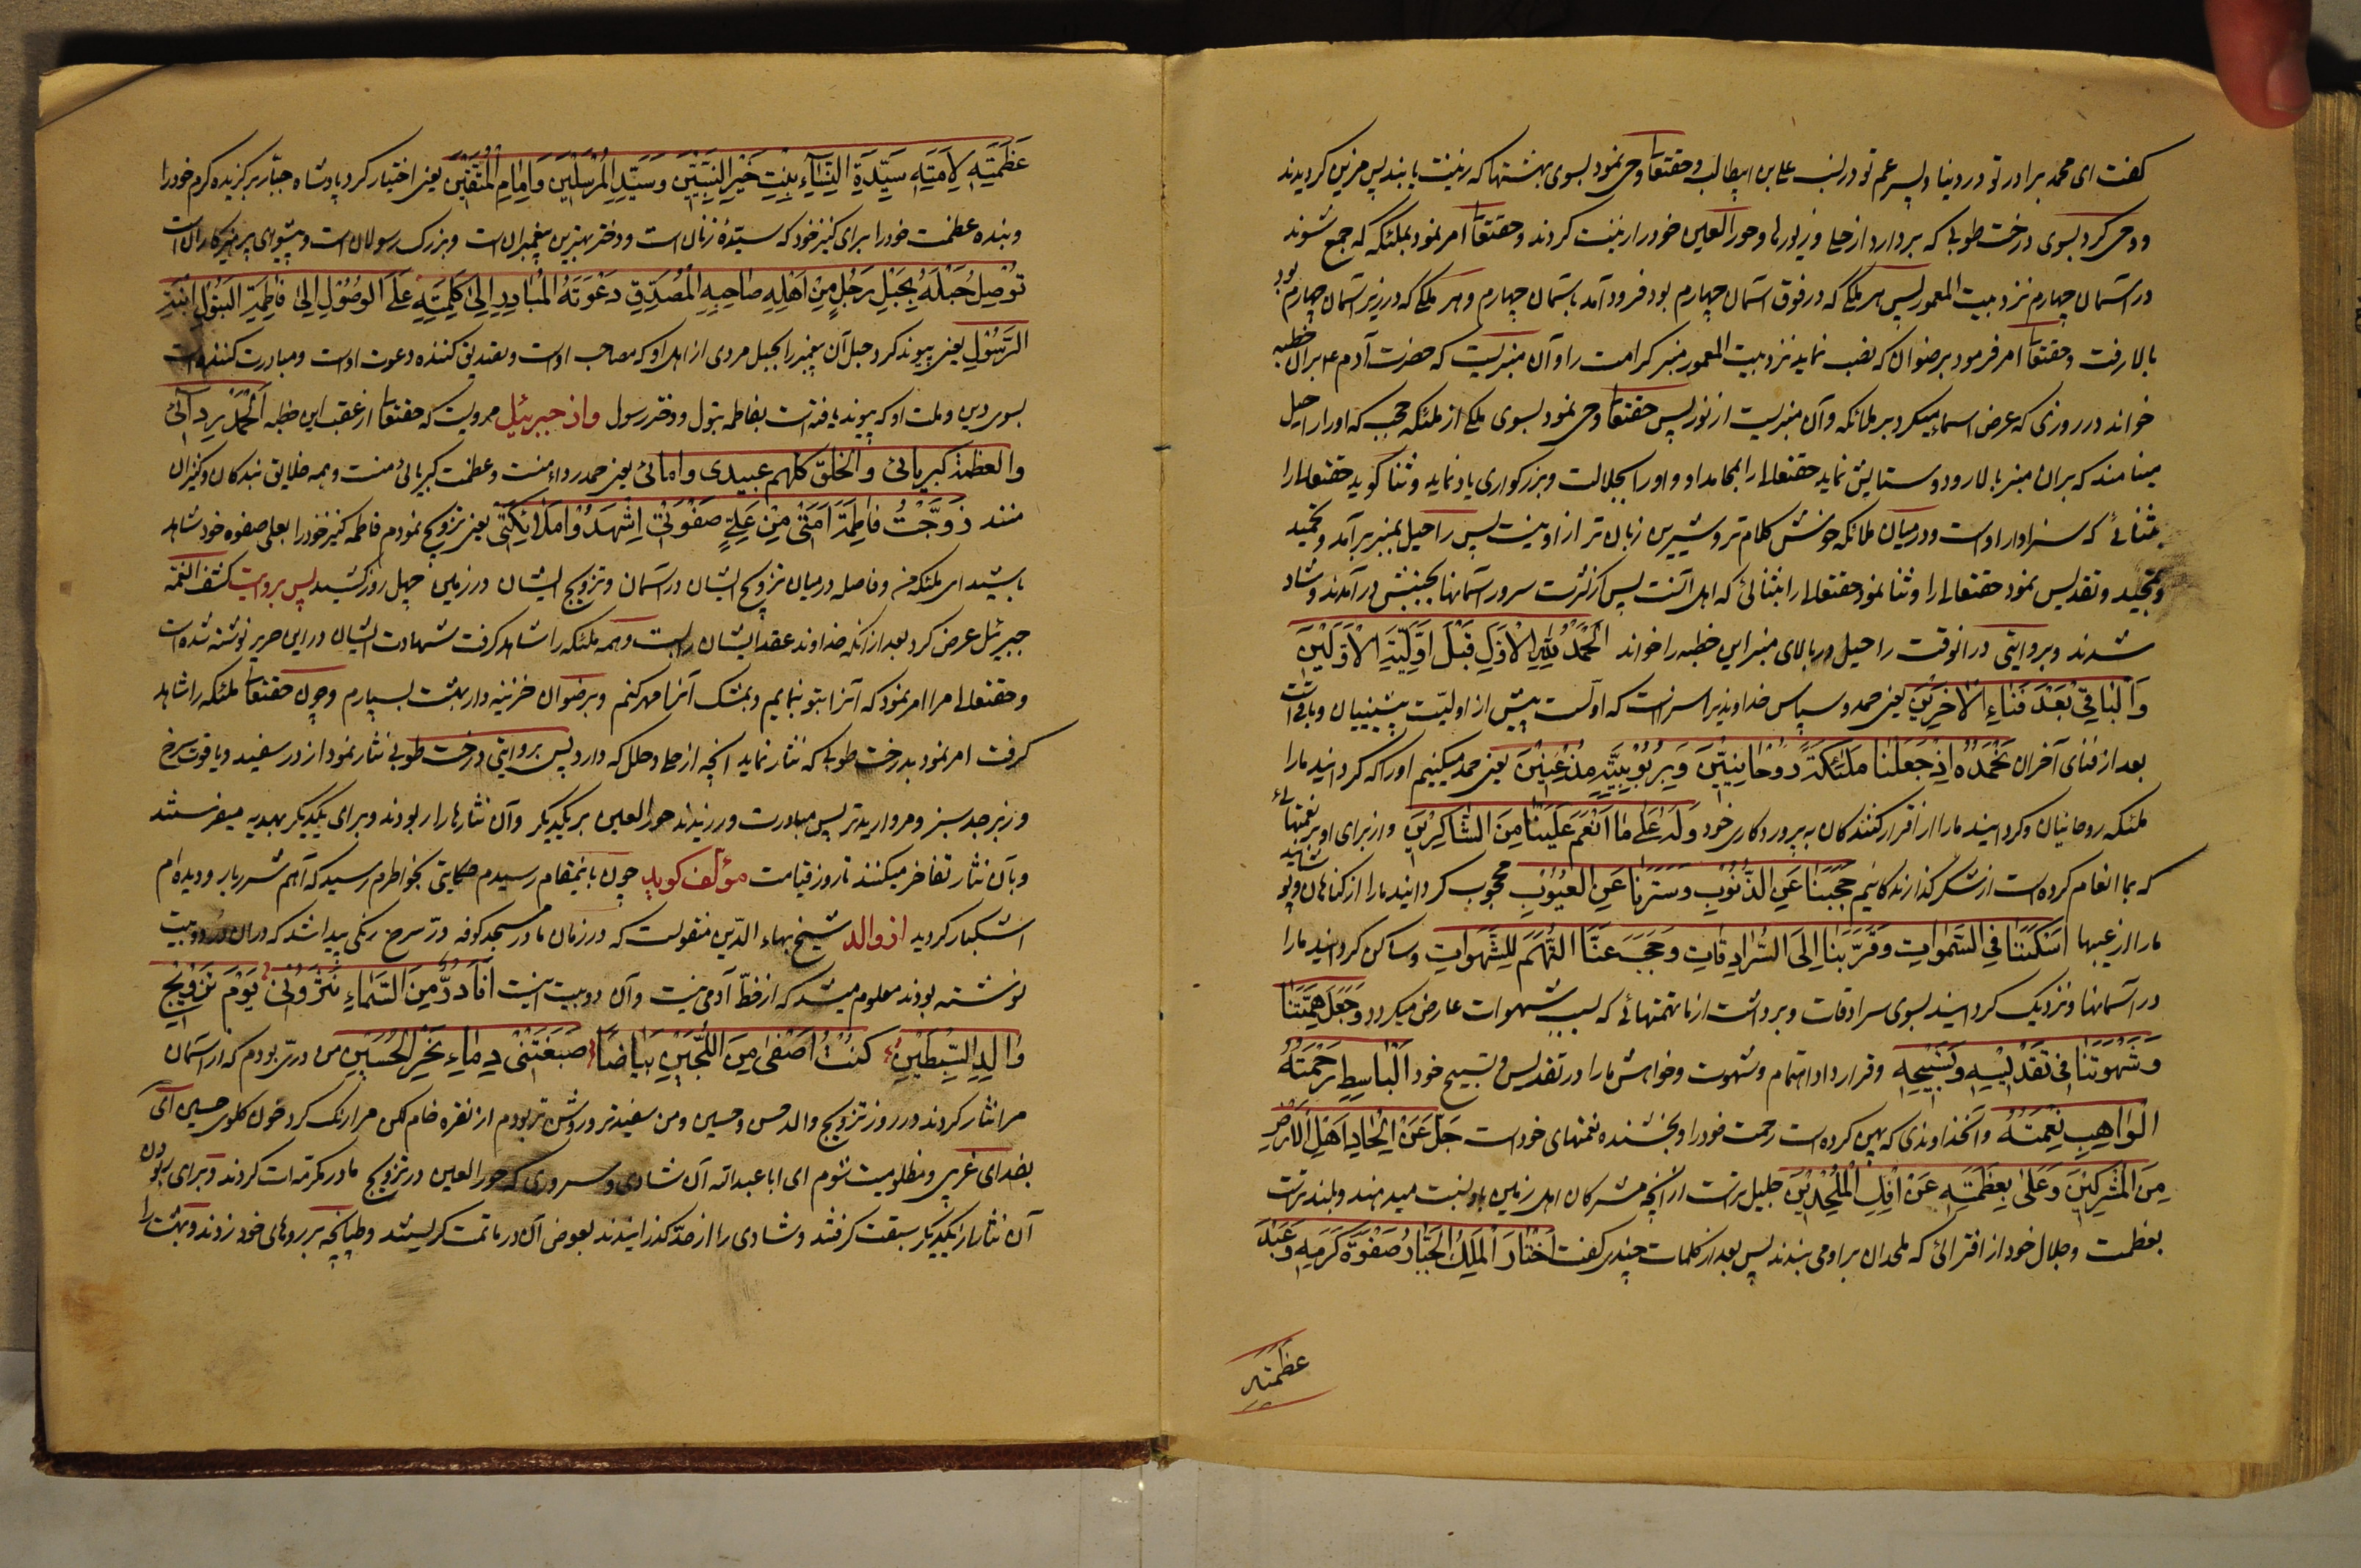 گفت ای محمد برادر تو در دنیا و پسر عم تو در نسب علی بن ابیطالب و حقتعا وحی نمود بسوی بهشتها که زینت یابند پس مزین گردیدند
و وحی کرد بسوی درخت طوبی که بردارد از حلی و زیورها و حورالعین خود را زینت کردند و حقتعا امر نمود بملئکه که جمع شوند
در آسمان چهارم نزد بیت المعمور پس هر ملکی که در فوق آسمان چهارم بود فرود آمد بآسمان چهارم و هر ملکی که در زیر آسمان چهارم بود
بالا رفت و حقتعا امر فرمود برضوان که نصب نماید نزد بیت المعمور منبر کرامت را و آن منبریست که حضرت آدم ع بر آن خطبه
خواند در روزی که عرض اسماء میکرد بر ملائکه و آن منبریست از نور پس حقتعا وحی نمود بسوی ملکی از ملئکه حجب که او را راحیل
مینامند که بر آن منبر بالا رود و ستایش نماید حقتعالی را بمحامد او و او را بجلالت و بزرگواری یاد نماید و ثنا گوید حقتعالی را
بثنائی که سزاوار اوست و در میان ملائکه خوش کلام تر و شیرین زبان تر از او نیست پس راحیل بمنبر برآمد و تحمید
و تمجید و تقدیس نمود حقتعالی را و ثنا نمود حقتعالی را بثنائی که اهل آنست پس از کثرت سرور آسمانها بجنبش درآمدند و شاد
شدند و بروایتی در آنوقت راحیل در بالای منبر این خطبه را خواند اَلْحَمْدُ لِلّٰهِ الْاَوَّلِ قَبْلَ اَوَّلِیَّةِ الْاَوَّلینَ
وَالْباقی بَعْدَ فَناءِ الْآخِرینَ یعنی حمد و سپاس خداوندیرا سزاست که اوّلست پیش از اولیّت پیشینیان و باقی است
بعد از فنای آخران نَحْمَدُهُ اِذْ جَعَلَنا مَلٰئِکَةً رُوحانِیّینَ وَ بِرُبُوبِیَّتِهِ مُذْعِنینَ یعنی حمد میکنیم او را که گردانید ما را
ملئکه روحانیان و گردانید ما را از اقرار کنندگان به پروردگاری خود وَ لَهُ عَلیٰ ما اَنْعَمَ عَلَیْنا مِنَ الشّاکِرینَ و از برای او بر نعمتهائی
که بما انعام کرده است از شکر گذارندگانیم حَجَبَنا عَنِ الذُّنُوبِ وَ سَتَرَنا عَنِ الْعُیُوبِ محجوب گردانید ما را از گناهان و پوشانید
ما را از عیبها اَسْکَنَنا فِی السَّمٰواتِ وَ قَرَّبَنا اِلَی السُّرادِقاتِ وَ حَجَبَ عَنَّا النَّهَمَ لِلشَّهَواتِ و ساکن گردانید ما را
در آسمانها و نزدیک گردانید بسوی سرادقات و برداشت از ما تهمتهائی که بسبب شهوات عارض میگردد وَ جَعَلَ هِمَّتَنا
وَ شَهْوَتَنا فی تَقْدیسِهِ وَ تَسْبیحِهِ و قرار داد اهتمام و شهوت و خواهش ما را در تقدیس و تسبیح خود اَلْباسِطِ رَحْمَتَهُ
الْواهِبِ نِعْمَتَهُ و آنخداوندی که پهن کرده است رحمت خود را و بخشنده نعمتهای خود است جَلَّ عَنْ اِلْحادِ اَهْلِ الْاَرْضِ
مِنَ الْمُشْرِکینَ وَ عَلیٰ بِعَظَمَتِهِ عَنْ اِفْکِ الْمُلْحِدینَ جلیل تر است از آنچه مشرکان اهل زمین باو نسبت میدهند و بلندتر است
بعظمت و جلال خود از افترائی که ملحدان بر او می بندند پس بعد از کلمات چندی گفت اِخْتارَ الْمَلِکُ الْجَبّارُ صَفْوَةَ کَرَمِهِ وَ عَبْدَ
عظمته
عَظَمَتِهِ لِاَمَتِهِ سَیِّدَةِ النِّساءِ بِنْتِ خَیْرِ النَّبِیّینَ وَ سَیِّدِ الْمُرْسَلینَ وَ اِمامِ الْمُتَّقینَ یعنی اختیار کرد پادشاه جبّار برگزیده کرم خود را
و بنده عظمت خود را برای کنیز خود که سیّدهٔ زنان است و دختر بهترین پیغمبران است و بزرگ رسولان است و پیشوای پرهیزکاران است
تُوصِلُ حَبْلَهُ بِحَبْلِ رَجُلٍ مِنْ اَهْلِهِ صاحِبِهِ الْمُصَدِّقِ دَعْوَتَهُ الْمُبادِرِ اِلیٰ کَلِمَتِهِ عَلَی الْوُصُولِ اِلیٰ فاطِمَةَ الْبَتُولِ ابْنَتِهِ
الرَّسُولِ یعنی پیوند کرد حبل آن پیغمبر را بحبل مردی از اهل او که مصاحب اوست و تصدیق کننده دعوت اوست و مبادرت کننده است
بسوی دین و ملت او که پیوند یافته است بفاطمه بتول و دختر رسول و از جبرئیل مرویست که حقتعا از عقب این خطبه اَلْحَمْدُ رِدائی
والعظمة کبریائی والخلق کلهم عبیدی و امائی یعنی حمد رداء منست و عظمت کبریائی منست و همه خلایق بندگان و کنیزان
منند زَوَّجْتُ فاطِمَةَ اَمَتی مِنْ عَلِیٍّ صَفْوَتی اِشْهَدُوا مَلائِکَتی یعنی تزویج نمودم فاطمه کنیز خود را بعلی صفوه خود شاهد
باشید ای ملئکه من و فاصله در میان تزویج ایشان در آسمان و تزویج ایشان در زمین چهل روز کشید پس بروایت کشف الغمّه
جبرئیل عرض کرد بعد از آنکه خداوند عقد ایشان را بست و همه ملئکه را شاهد گرفت شهادت ایشان در این حریر نوشته شده است
و حقتعالی مرا امر نمود که آنرا بتو بنمایم و بمشک آنرا مهر کنم و برضوان خزینه دار بهشت بسپارم و چون حقتعا ملئکه را شاهد
گرفت امر نمود بدرخت طوبی که نثار نماید آنچه از حلی و حلل که دارد پس بروایتی درخت طوبی نثار نمود از در سفید و یاقوت سرخ
و زبرجد سبز و مروارید تر پس مبادرت ورزیدند حورالعین بر یکدیگر و آن نثارها را ربودند و برای یکدیگر بهدیه میفرستند
و بآن نثار تفاخر میکنند تا روز قیامت مؤلف گوید چون باینمقام رسیدم حکایتی بخواطرم رسید که آهم شرربار و دیده ام
اشکبار گردید از والد شیخ بهاء الدّین منقولست که در زمان ما در مسجد کوفه درّ سرخ رنگی پیدا شد که در آن دُر دو بیت
نوشته بودند معلوم میشد که از خطّ آدمی نیست و آن دو بیت اینست اَنَا دُرٌّ مِنَ السَّماءِ نَثَرُونی یَوْمَ تَزْویجِ
والِدِ السِّبْطَیْنِ کُنْتُ اَصْفیٰ مِنَ اللُّجَیْنِ بَیاضاً صَبَغَتْنی دِماءُ نَحْرِ الْحُسَیْنِ من درّی بودم که از آسمان
مرا نثار کردند در روز تزویج والد حسن و حسین و من سفیدتر و روشن تر بودم از نقره خام لکن مرا رنگ کرد خون گلوی حسین ای
بفدای غریبی و مظلومیت شوم ای ابا عبدالله آن شادی و سروری که حورالعین در تزویج مادر مکرّمه ات کردند و برای ربودن
آن نثار از یکدیگر سبقت گرفتند و شادی را از حدّ گذرانیدند بعوض آن در ماتمت گریستند و طپانچه بر روهای خود زدند و بهشت را